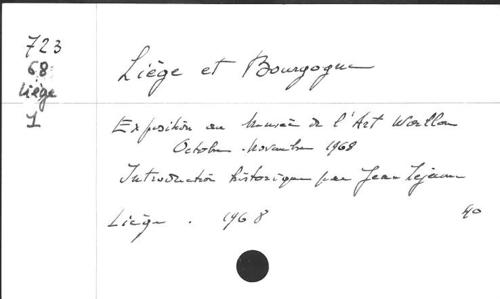 723
68:
Liége
1
Liège et Bourgogne
Exposition au Musée de l'Art Wallon
Octobre-Novembre 1968
Introduction historique par Jean Lejeune
Liège. 1968
40